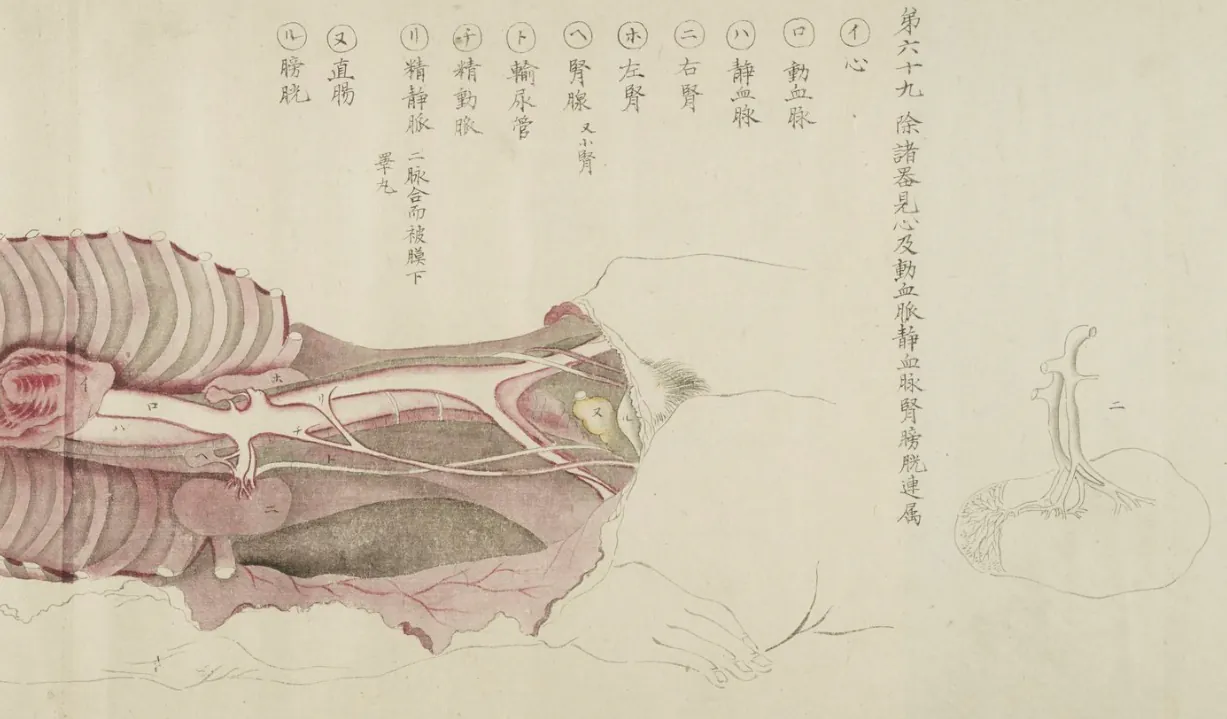 第六十九 除諸器見心及動血脈静血脉腎膀胱連属
イ 心
ロ 動血脉
ハ 静血脉
ニ 右腎
ホ 左腎
ヘ 腎腺 又小腎
ト 輸尿管
チ 精動脈
リ 精静脈 二脉合而被膜下
睾丸
ヌ 直腸
ル 膀胱
イ
ロ
ハ
ホ
リ
チ
ヘ
ト
ニ
ヌ
ル
ニ